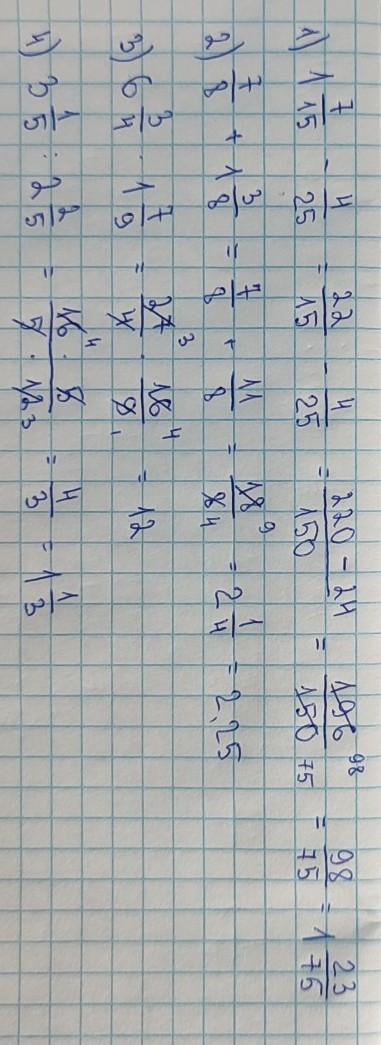 1) 1 7/15 - 4/25 = 22/15 - 4/25 = 220 - 24/150 = 196/150 98/75 = 98/75 = 1 23/75
2) 7/8 + 1 3/8 = 7/8 + 11/8 = 18/8 9/4 = 2 1/4 = 2,25
3) 6 3/4 · 1 7/9 = 27/4 3 · 16/9 4/1 = 12
4) 3 1/5 : 2 2/5 = 16 4 · 5/5 · 12 3 = 4/3 = 1 1/3